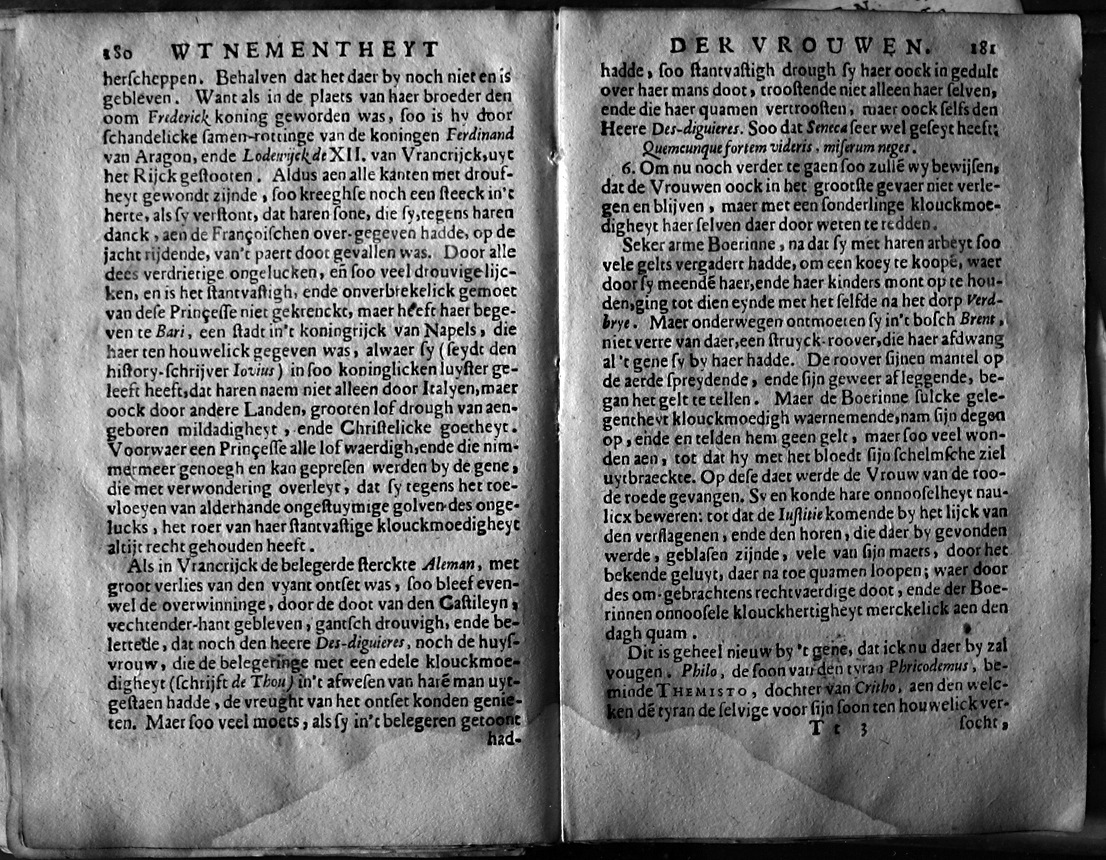 180 WTNEMENTHEYT
herſcheppen. Behalven dat het daer by noch niet en is
gebleven. Want als in de plaets van haer broeder den
oom Frederick koning geworden was, ſoo is hy door
ſchandelicke ſamen-rottinge van de koningen Ferdinand
van Aragon, ende Lodewijck de XII. van Vrancrijck, uyt
het Rijck geſtooten. Aldus aen alle kanten met drouf-
heyt gewondt zijnde, ſoo kreeghſe noch een ſteeck in't
herte, als ſy verſtont, dat haren ſone, die ſy, tegens haren
danck, aen de Françoiſchen over-gegeven hadde, op de
jacht rijdende, van't paert doot gevallen was. Door alle
dees verdrietige ongelucken, eñ ſoo veel drouvige lijc-
ken, en is het ſtantvaſtigh, ende onverbrekelick gemoet
van deſe Prinçeſſe niet gekrenckt, maer heeft haer bege-
ven te Bari, een ſtadt in't koningrijck van Napels, die
haer ten houwelick gegeven was, alwaer ſy (ſeydt den
hiſtory-ſchrijver Iovius) in ſoo koninglicken luyſter ge-
leeft heeft, dat haren naem niet alleen door Italyen, maer
oock door andere Landen, grooten lof drough van aen-
geboren mildadigheyt, ende Chriſtelicke goetheyt.
Voorwaer een Prinçeſſe alle lof waerdigh, ende die nim-
mermeer genoegh en kan gepreſen werden by de gene,
die met verwondering overleyt, dat ſy tegens het toe-
vloeyen van alderhande ongeſtuymige golven des onge-
lucks, het roer van haer ſtantvaſtige klouckmoedigheyt
altijt recht gehouden heeft.
Als in Vrancrijck de belegerde ſterckte Aleman, met
groot verlies van den vyant ontſet was, ſoo bleef even-
wel de overwinninge, door de doot van den Caſtileyn,
vechtender-hant gebleven, gantſch drouvigh, ende be-
lettede, dat noch den heere Des-diguieres, noch de huyſ-
vrouw, die de belegeringe met een edele klouckmoe-
digheyt (ſchrijft de Thou) in't afweſen van harē man uyt-
geſtaen hadde, de vreught van het ontſet konden genie-
ten. Maer ſoo veel moets, als ſy in't belegeren getoont
had-
DER VROUWEN. 181
hadde, ſoo ſtantvaſtigh drough ſy haer oock in gedult
over haer mans doot, trooſtende niet alleen haer ſelven,
ende die haer quamen vertrooſten, maer oock ſelfs den
Heere Des-diguieres. Soo dat Seneca ſeer wel geſeyt heeft;
Quemcunque fortem videris, miſerum neges.
6. Om nu noch verder te gaen ſoo zullē wy bewijſen,
dat de Vrouwen oock in het grootſte gevaer niet verle-
gen en blijven, maer met een ſonderlinge klouckmoe-
digheyt haer ſelven daer door weten te redden.
Seker arme Boerinne, na dat ſy met haren arbeyt ſoo
vele gelts vergadert hadde, om een koey te koopē, waer
door ſy meendē haer, ende haer kinders mont op te hou-
den, ging tot dien eynde met het ſelfde na het dorp Verd-
brye. Maer onderwegen ontmoeten ſy in't boſch Brent,
niet verre van daer, een ſtruyck-roover, die haer afdwang
al 't gene ſy by haer hadde. De roover ſijnen mantel op
de aerde ſpreydende, ende ſijn geweer afleggende, be-
gan het gelt te tellen. Maer de Boerinne ſulcke gele-
gentheyt klouckmoedigh waernemende, nam ſijn degen
op, ende en telden hem geen gelt, maer ſoo veel won-
den aen, tot dat hy met het bloedt ſijn ſchelmſche ziel
uytbraeckte. Op deſe daet werde de Vrouw van de roo-
de roede gevangen. Sy en konde hare onnooſelheyt nau-
licx beweren: tot dat de Iuſtitie komende by het lijck van
den verſlagenen, ende den horen, die daer by gevonden
werde, geblaſen zijnde, vele van ſijn maets, door het
bekende geluyt, daer na toe quamen loopen; waer door
des om-gebrachtens rechtvaerdige doot, ende der Boe-
rinnen onnooſele klouckhertigheyt merckelick aen den
dagh quam.
Dit is geheel nieuw by 't gene, dat ick nu daer by zal
vougen. Philo, de ſoon van den tyran Phricodemus, be-
minde THEMISTO, dochter van Critho, aen den welc-
ken dē tyran de ſelvige voor ſijn ſoon ten houwelick ver-
Tt 3 ſocht,